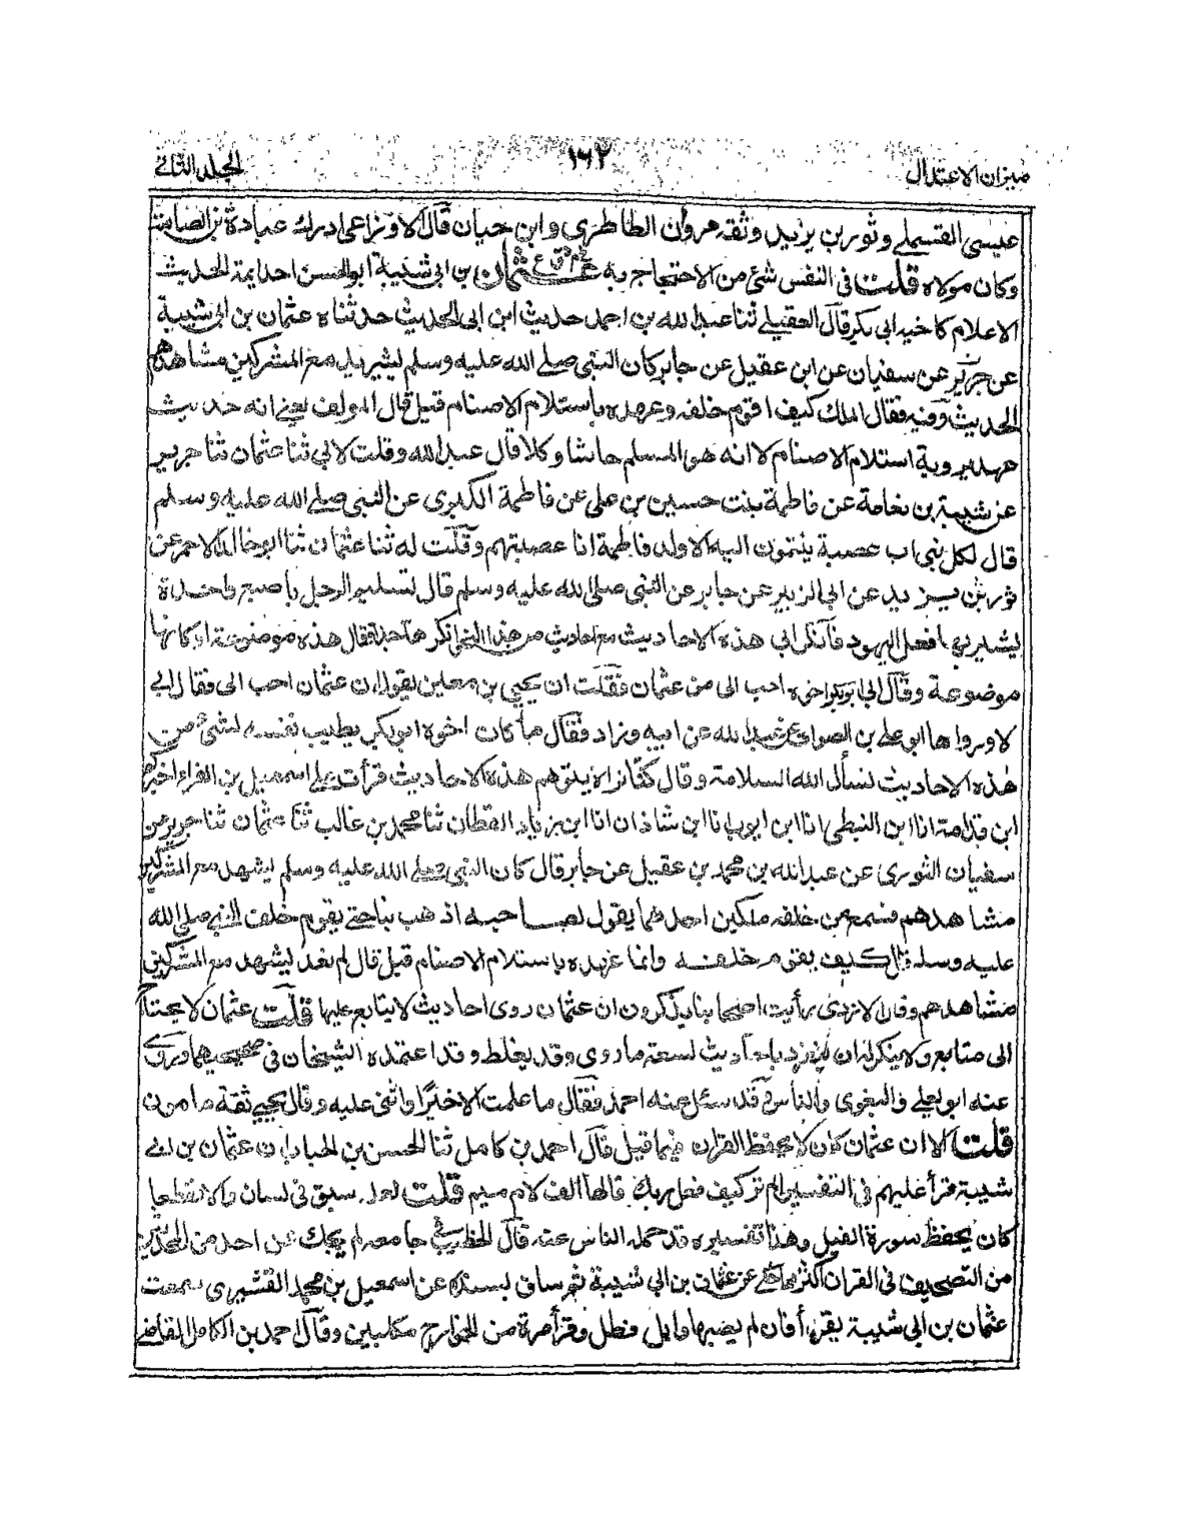 ميزان الاعتدال ١٦٢ الجلد الثاني
عيسى القسملے وثور بن يزيد وثقه مروان الطاطري وابن حبان قال الاوزاعى ادرك عبادة بن الصامت
وكان مولاه قلت فى النفس شئ من الاحتجاج به عثمان بن ابى شيبة ابوالحسن احد ايمة الحديث
الاعلام كاخيه ابى بكر قال العقيلے ثنا عبدالله بن احمد حديث ابن ابى الحديث حدثناه عثمان بن ابى شيبة
عن جرير عن سفيان عن ابن عقيل عن جابر كان النبى صلے الله عليه وسلم يشهد مع المشركين مشاهدهم
الحديث وفيه فقال الملك كيف اقوم خلفه وعهده باستلام الاصنام قبل قال المولف يعنے انه حديث
عهد برؤية استلام الاصنام لا انه هو المستلم حاشا وكلا قال عبدالله وقلت لابى ثنا عثمان ثنا جرير
عن شيبة بن نعامة عن فاطمة بنت حسين بن على عن فاطمة الكبرى عن النبى صلے الله عليه وسلم
قال لكل بنى اب عصبة ينتمون اليه الا ولد فاطمة انا عصبتهم وقلت له ثنا عثمان ثنا ابوخالد الاحمر عن
ثور بن يزيد عن ابى الزبير عن جابر عن النبى صلى الله عليه وسلم قال تسليم الرجل باصبع واحدة
يشير بها فعل اليهود فانكر ابى هذه الاحاديث مع احاديث من هذا النحو انكرها جدا فقال هذه موضوعة او كانها
موضوعة وقال ابى ابوبكر اخوه احب الى من عثمان فقلت ان يحيى بن معين يقول ان عثمان احب الى فقال ابى
لا ورواها ابو على بن الصواف عن عبد الله عن ابيه وزاد فقال ما كان اخوه ابوبكر يطيب نفسه لشئ من
هذه الاحاديث نسأل الله السلامة وقال كنا نراه يتوهم هذه الاحاديث قرأت على اسمعيل بن الفراء اخبركم
ابن قدامة انا ابن البطى انا ابن ايوب انا ابن شاذان انا ابن زياد القطان ثنا محمد بن غالب ثنا عثمان ثنا جرير عن
سفيان الثورى عن عبدالله بن محمد بن عقيل عن جابر قال كان النبى صلے الله عليه وسلم يشهد مع المشركين
مشاهدهم فسمع من خلفه ملكين احدهما يقول لصاحبه اذهب بنا حتے يقوم خلف النبى صلى الله
عليه وسلم قال كيف يقوم خلفه وانما عهده باستلام الاصنام قبل قال لم يعد يشهد مع المشركين
مشاهدهم وقال الازدى رأيت اصحابنا يذكرون ان عثمان روى احاديث لا يتابع عليها قلت عثمان لا يحتاج
الى متابع ولا ينكر له ان ينفرد باحاديث لسعة ما روى وقد يغلط وقد اعتمده الشيخان فى صحيحيهما وروى
عنه ابو يعلے والبغوى والناس وقد سئل عنه احمد فقال ما علمت الا خيرا واثنى عليه وقال يحيى ثقة مامون
قلت الا ان عثمان كان لا يحفظ القران فيما قيل قال احمد بن كامل ثنا الحسن بن الحباب ان عثمان بن ابى
شيبة قرأ عليهم فى التفسير الم تر كيف فعل ربك قالها الف لام ميم قلت لعله سبق لسان والا فقطعا
كان يحفظ سورة الفيل وهذا تفسيره قد حمله الناس عنه قال الخطيب فى جامعه لم يحك عن احد من المحدثين
من التصحيف فى القران اكثر مما حكى عن عثمان بن ابى شيبة ثم ساق بسنده عن اسمعيل بن محمد القشيرى سمعت
عثمان بن ابى شيبة يقرأ فان لم يصبها وابل فطل وقرأ مرة من الخوارج مكلبين وقال احمد بن الكامل القاضى